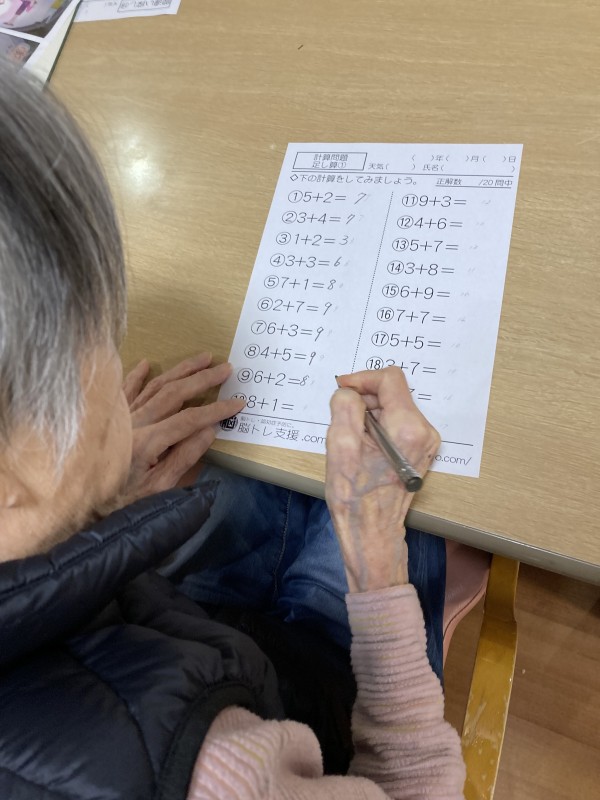 計算問題
足し算①
(　)年(　)月(　)日
天気(　)　氏名(　)
◇下の計算をしてみましょう。
正解数　/20問中
①5+2= 7
②3+4= 7
③1+2= 3
④3+3= 6
⑤7+1= 8
⑥2+7= 9
⑦6+3= 9
⑧4+5= 9
⑨6+2= 8
8+1=
⑪9+3=
⑫4+6=
⑬5+7=
⑭3+8=
⑮6+9=
⑯7+7=
⑰5+5=
⑱3+7=
7=
脳トレ・認知症予防に、
脳トレ支援.com
o.com/